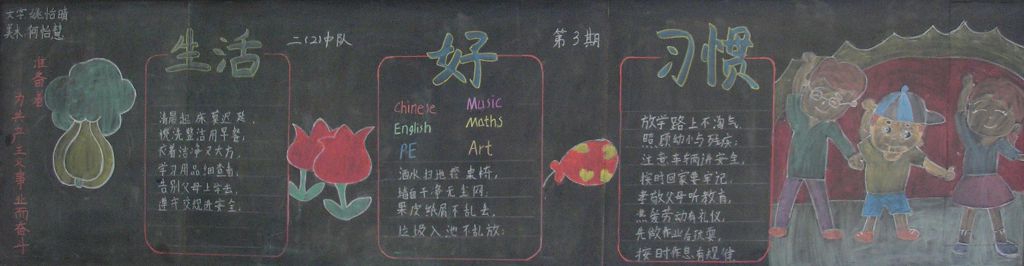 文字 姚怡晴
美术 何怡慧
准备着
为共产主义事业而奋斗
生活 好 习惯
二(2)中队
第3期
清晨起床莫迟延,
梳洗整洁用早餐,
衣着洁净又大方,
学习用品细查看,
告别父母上学去,
遵守交规走安全。
Chinese Music
English Maths
PE Art
洒水扫地擦桌椅,
墙面干净无尘网,
果皮纸屑不乱丢,
垃圾入池不乱放;
放学路上不淘气,
照顾幼小与残疾;
注意车辆讲安全,
按时回家要牢记,
孝敬父母听教育,
热爱劳动有礼仪,
先做作业后玩耍,
按时作息有规律